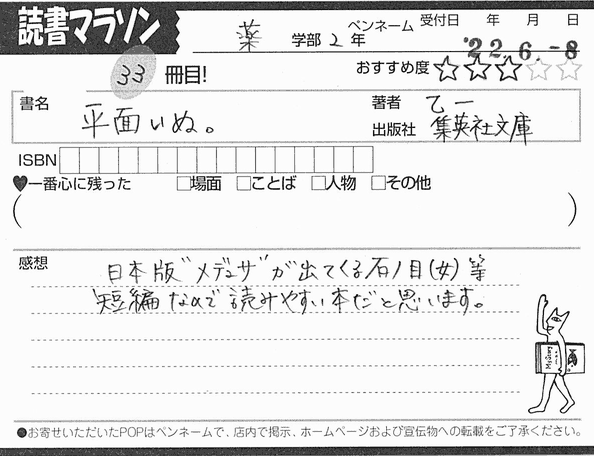 読書マラソン
薬 学部 2 年 ペンネーム 受付日 年 月 日
'22.6.-8
33 冊目! おすすめ度 ☆☆☆☆☆
書名 平面いぬ。 著者 乙一
出版社 集英社文庫
ISBN
♥一番心に残った □場面 □ことば □人物 □その他
( )
感想
日本版"メデューサ"が出てくる石ノ目(女)等
短編なので読みやすい本だと思います。
●お寄せいただいたPOPはペンネームで、店内で掲示、ホームページおよび宣伝物への転載をご了承ください。